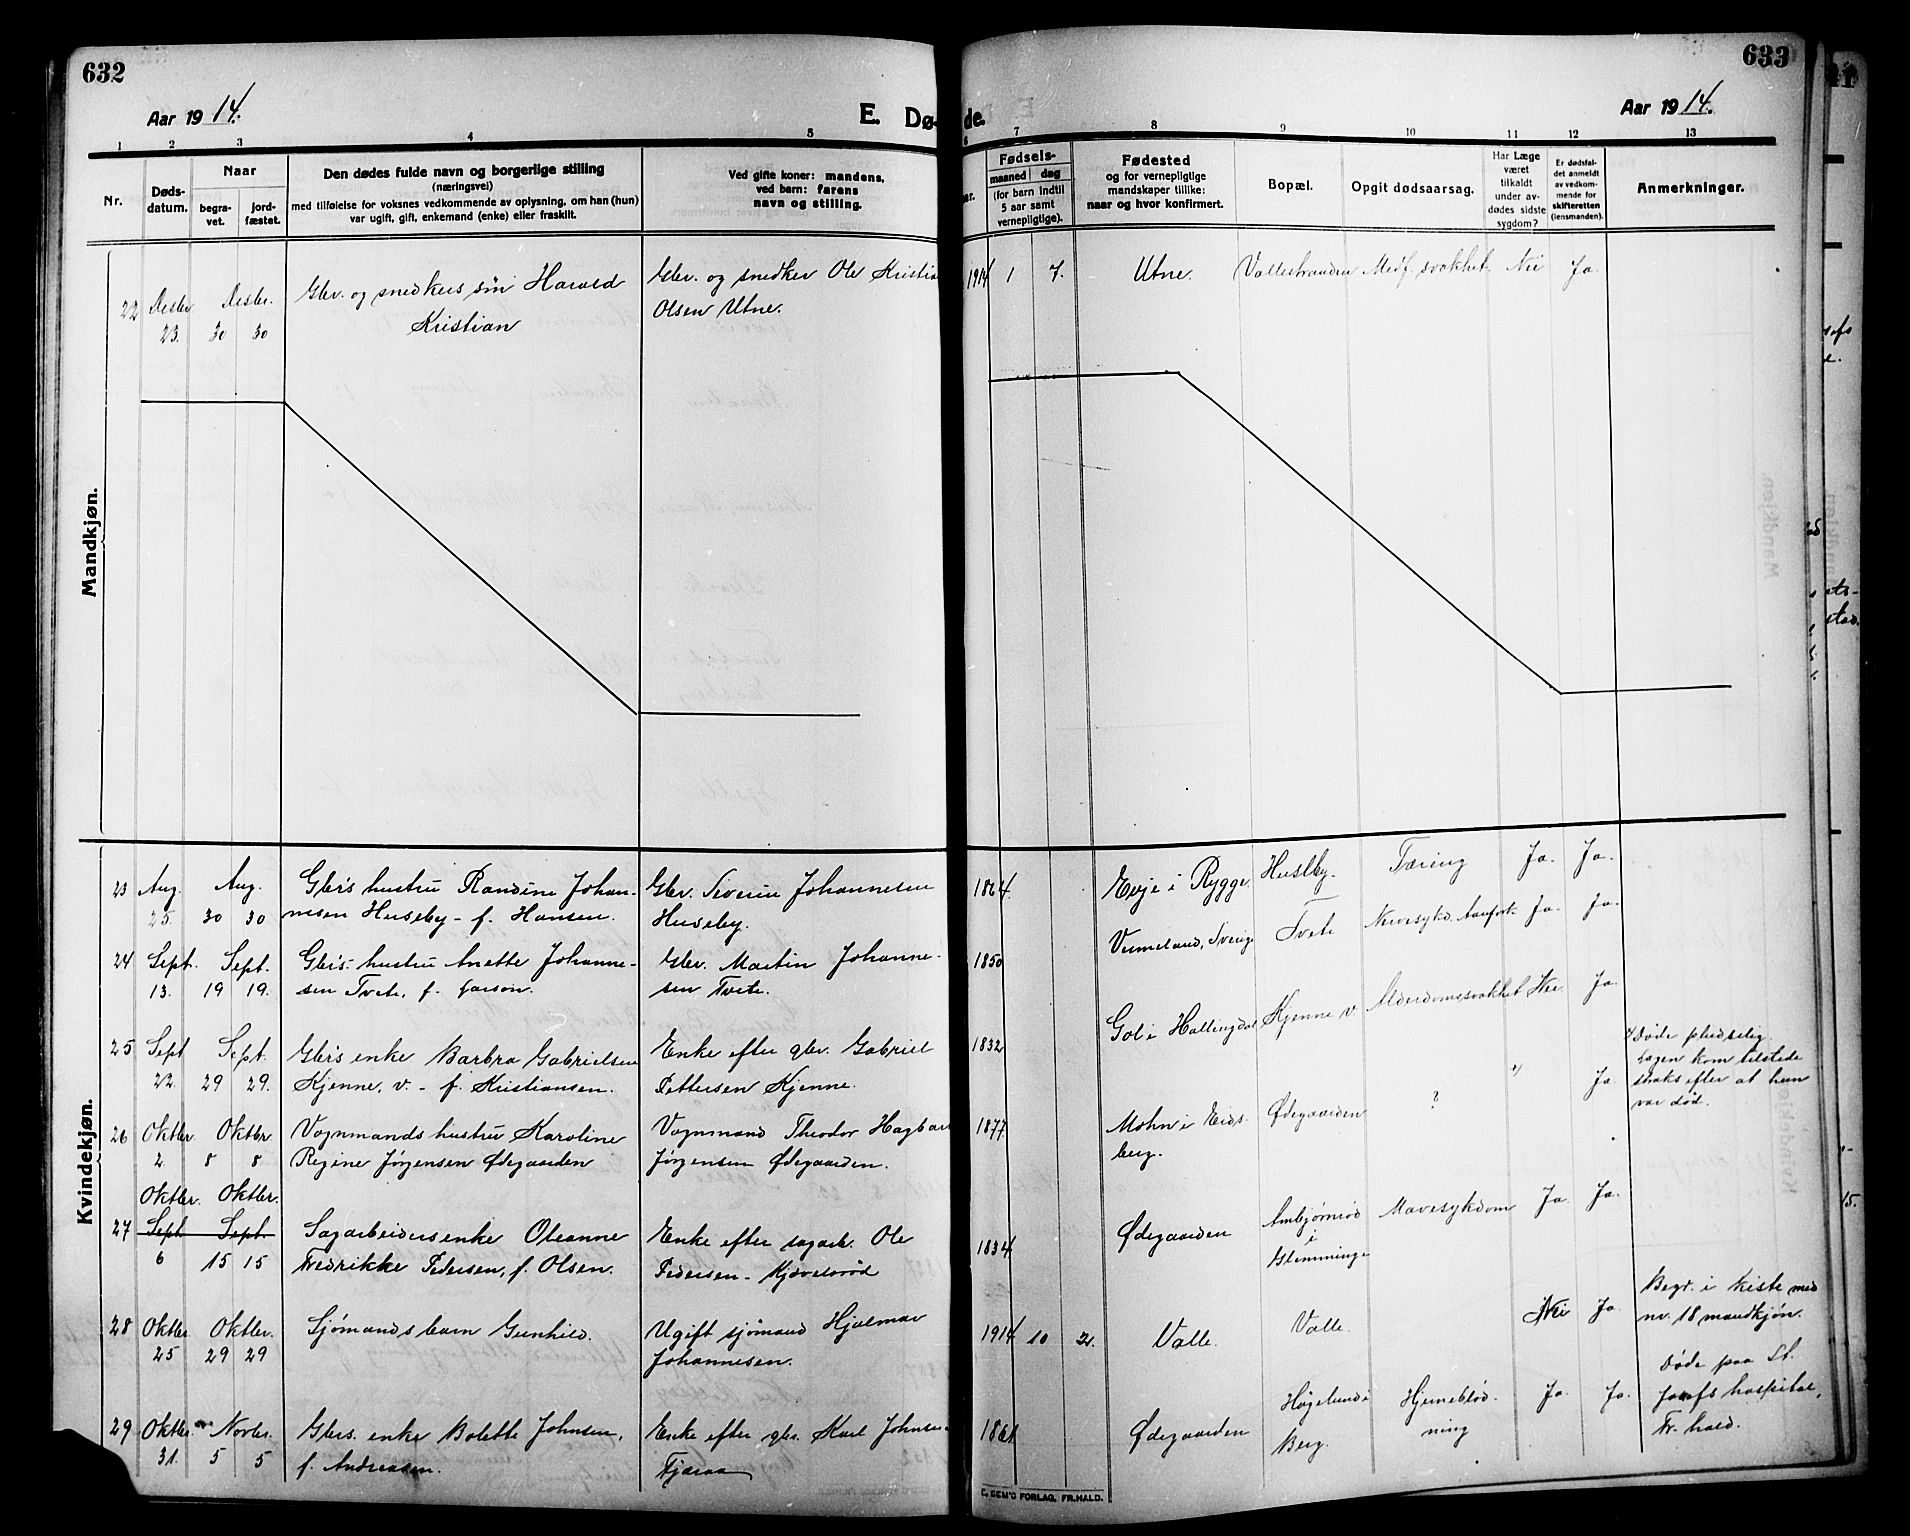 632
Aar 1914.
E. Dø-
1 2 3 4 5
Nr.
Døds-
datum.
Naar
begra-
vet.
jord-
fæstet.
Den dødes fulde navn og borgerlige stilling
(næringsvei)
med tilføielse for voksnes vedkommende av oplysning, om han (hun)
var ugift, gift, enkemand (enke) eller fraskilt.
Ved gifte koner: mandens,
ved barn: farens
navn og stilling.
Mandkjøn.
22 Desbr. Desbr. Gbr. og snedkers søn Harald Gbr. og snedker Ole Kristia
23. 30 30 Kristian Olsen Utne.
Kvindekjøn.
23 Aug. Aug. Gbr's hustru Randine Johan- Gbr. Severin Johannesen
25. 30 30 nesen Huseby - f. Hansen. Huseby.
24 Sept. Sept. Gbr's hustru Anette Johanne- Gbr. Martin Johanne-
13. 19 19. sen Tvete, f. Larson. sen Tvete.
25 Sept Sept. Gbr's enke Barbra Gabrielsen Enke efter gbr. Gabriel
22. 29 29. Kjenne, v. - f. Kristiansen. Pettersen Kjenne.
26 Oktbr. Oktbr. Vognmands hustru Karoline Vognmand Theodor Hagbar
2. 8 8. Regine Jørgensen Ødegaarden Jørgensen Ødegaarden.
Oktbr. Oktbr.
27 Sept. Sept. Sagarbeidersenke Oleanne Enke efter sagarb. Ole
6 15 15 Fredrikke Pedersen, f. Olsen. Pedersen - Kjævelsrød
28 Oktbr. Oktbr. Sjømandsbarn Gunhild. Ugift sjømand Hjalmar
25 29 29 Johannesen.
29 Oktbr. Novbr. Gbrs. enke Bolette Johnsen, Enke efter gbr. Karl Johnsen
31. 5 5 f. Andreasen. Fjæraa
633
Aar 1914.
de.
6 7 8 9 10 11 12 13
ar.
Fødsels-
maaned dag
(for barn indtil
5 aar samt
vernepligtige).
Fødested
og for vernepligtige
mandskaper tillike:
naar og hvor konfirmert.
Bopæl.
Opgit dødsaarsag.
Har Læge
været
tilkaldt
under av-
dødes sidste
sygdom?
Er dødsfal-
det anmeldt
av vedkom-
mende for
skifteretten
(lensmanden).
Anmerkninger.
1914 1 7. Utne. Vallestranden Medf. svakhet. Nei Ja.
1864. Evje i Rygge. Huseby. Tæring Ja. Ja.
1850 Vermeland, Sverige Tvete Nervesykd. Ja. Ja.
1832 Gol i Hallingdal Kjenne v. Alderdomssvakhet Nei Ja.
1877 Mohn i Eids-
berg. Ødegaarden ? Ja.
Døde pludselig.
Lægen kom tilstede
straks efter at hun
var død.
1834 Ødegaarden Ambjørnrød
i
Glemminge Mavesykdom Ja. Ja.
1914 10 2. Valle. Valle. Nei Ja.
Begr. i kiste med
nr. 18 mandkjøn.
1861 Ødegaarden Høgelund i
Berg. Hjerneblød-
ning Ja. Ja.
Døde paa St.
Josefs hospital,
Fr.hald.
E. SEM'S FORLAG, FR.HALD.